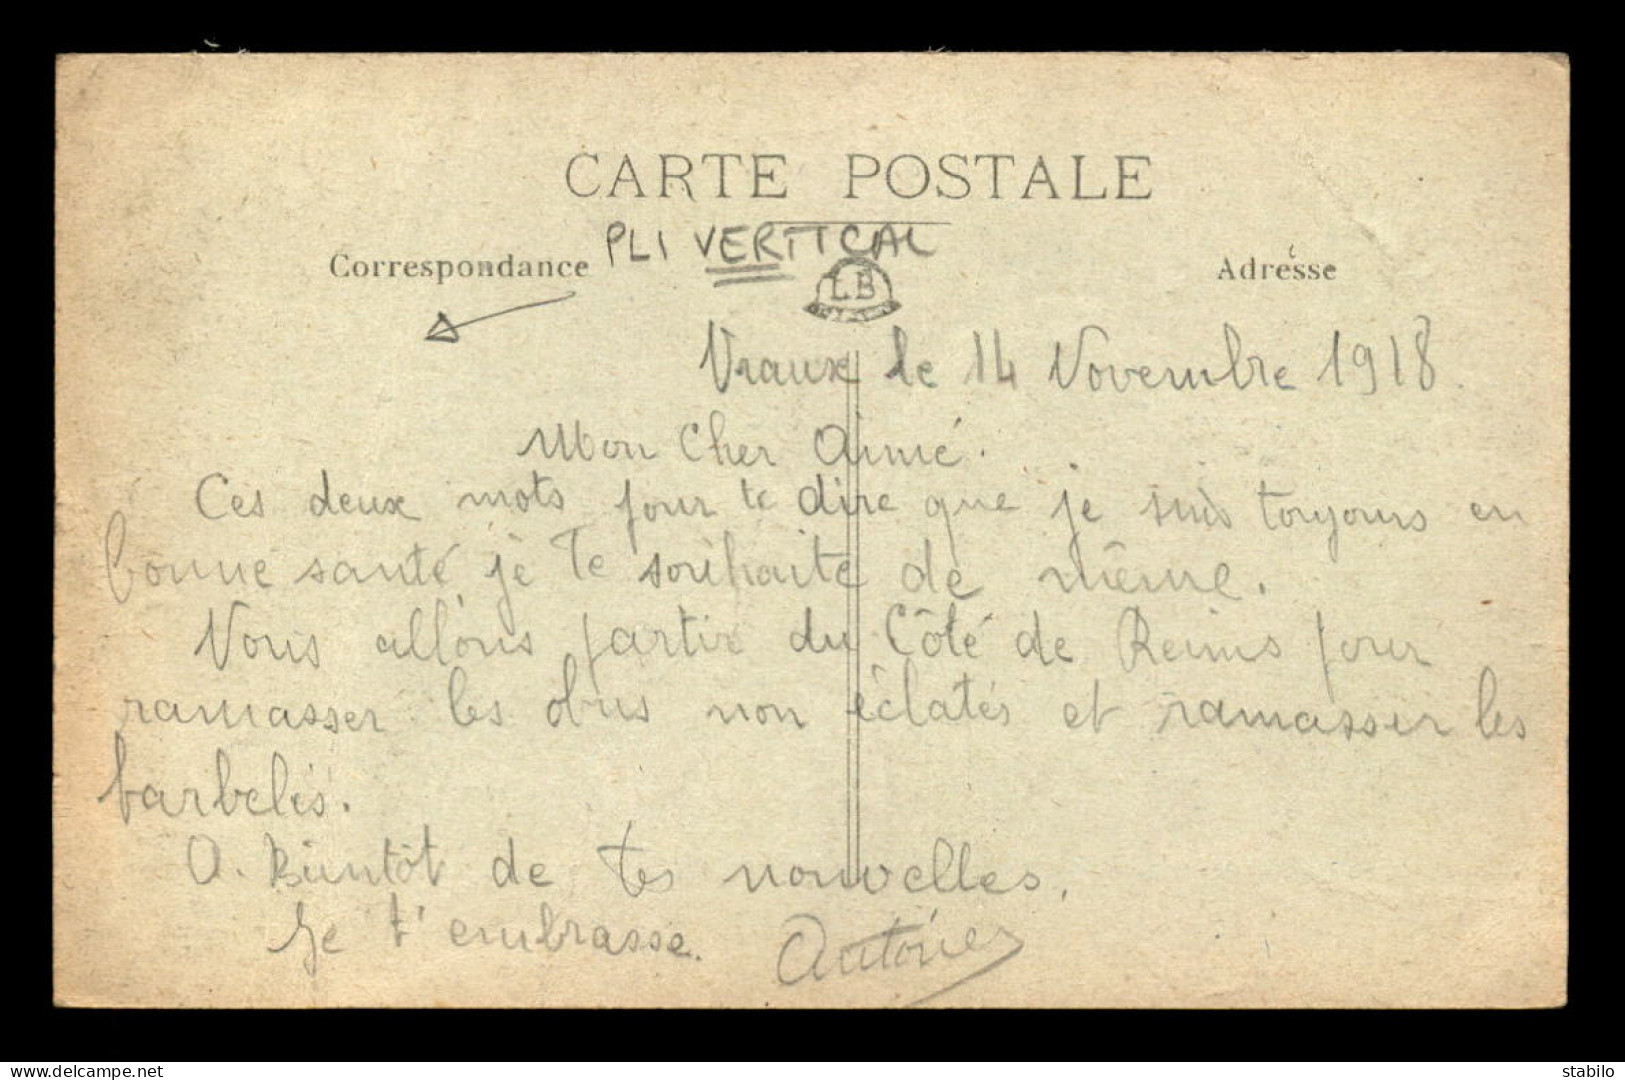 CARTE POSTALE
PLI VERTICAL
Correspondance
Adresse
LB
Vraux le 14 Novembre 1918.
Mon Cher Aimé.
Ces deux mots pour te dire que je suis toujours en
bonne santé je te souhaite de même.
Nous allons partir du Côté de Reims pour
ramasser les obus non éclatés et ramasser les
barbelés.
A. Bientôt de tes nouvelles.
Je t'embrasse. Antoine
delcampe.net
stabilo